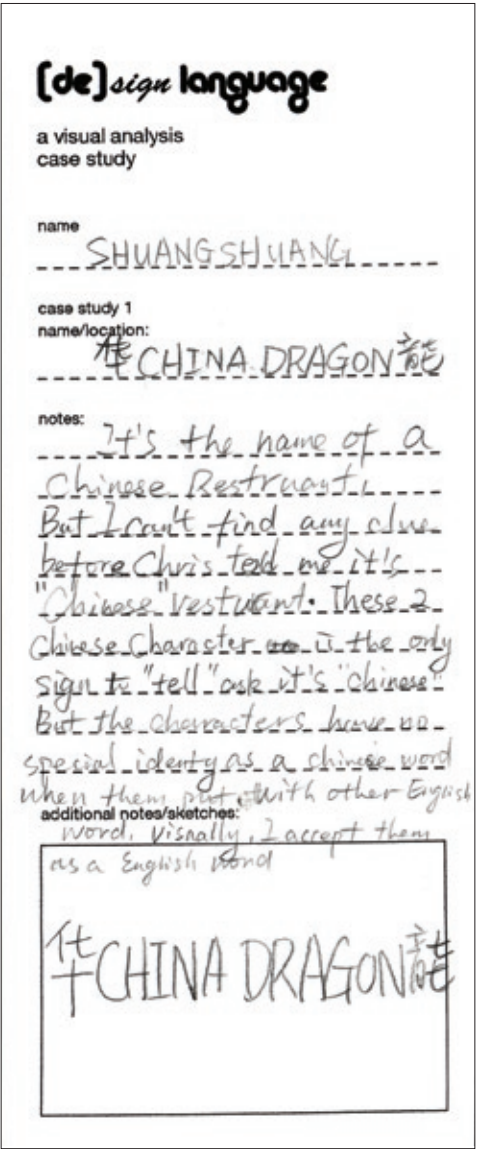 [de]sign language
a visual analysis
case study
name
SHUANGSHUANG
case study 1
name/location:
华CHINA DRAGON龍
notes:
It's the name of a
Chinese Restruant,
But I can't find any clue
before Chris told me it's
"Chinese" restuant. These 2
Chinese Character is the only
sign to "tell" ask it's "chinese"
But the characters have no
special identy as a chinese word
when them put with other English
additional notes/sketches:
word. Visnally, I accept them
as a English word
华CHINA DRAGON龍